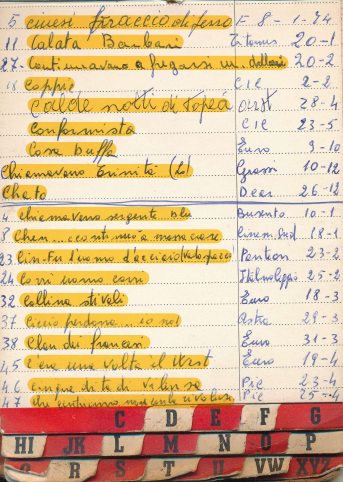 5 cinesi braccio di ferro F 8 - 1 - 74
11 Calata Barbari Titanus 20-1
27 - Continuavano a fregarsi un. dollari 20-2
Coppie CIC 2-2
Calde notti di Topeá 28-4
Conformista CIC 23-5
Cosa buffa Euro 9-10
Chiamavano Trinità (L) 10-12
Chato Dear 26-12
4 chiamavano sergente blu 10-1
8 Chen... 18-1
23 Cin-Fu l'uomo d'acciaio Panteon 23-2
24 Corri uomo corri Italnoleggio 25-2
32 Collina stivali Euro 18-3
37 Ciccio perdona... io no! Astra 29-3
38 Clan dei francesi Euro 31-3
45 C'era una volta il West Euro 19-4
46 cinque dita di violenza Pic 23-4
47 che Pic 25-4
C D E F G
HI JK L M N O P
Q R S T U VW XYZ